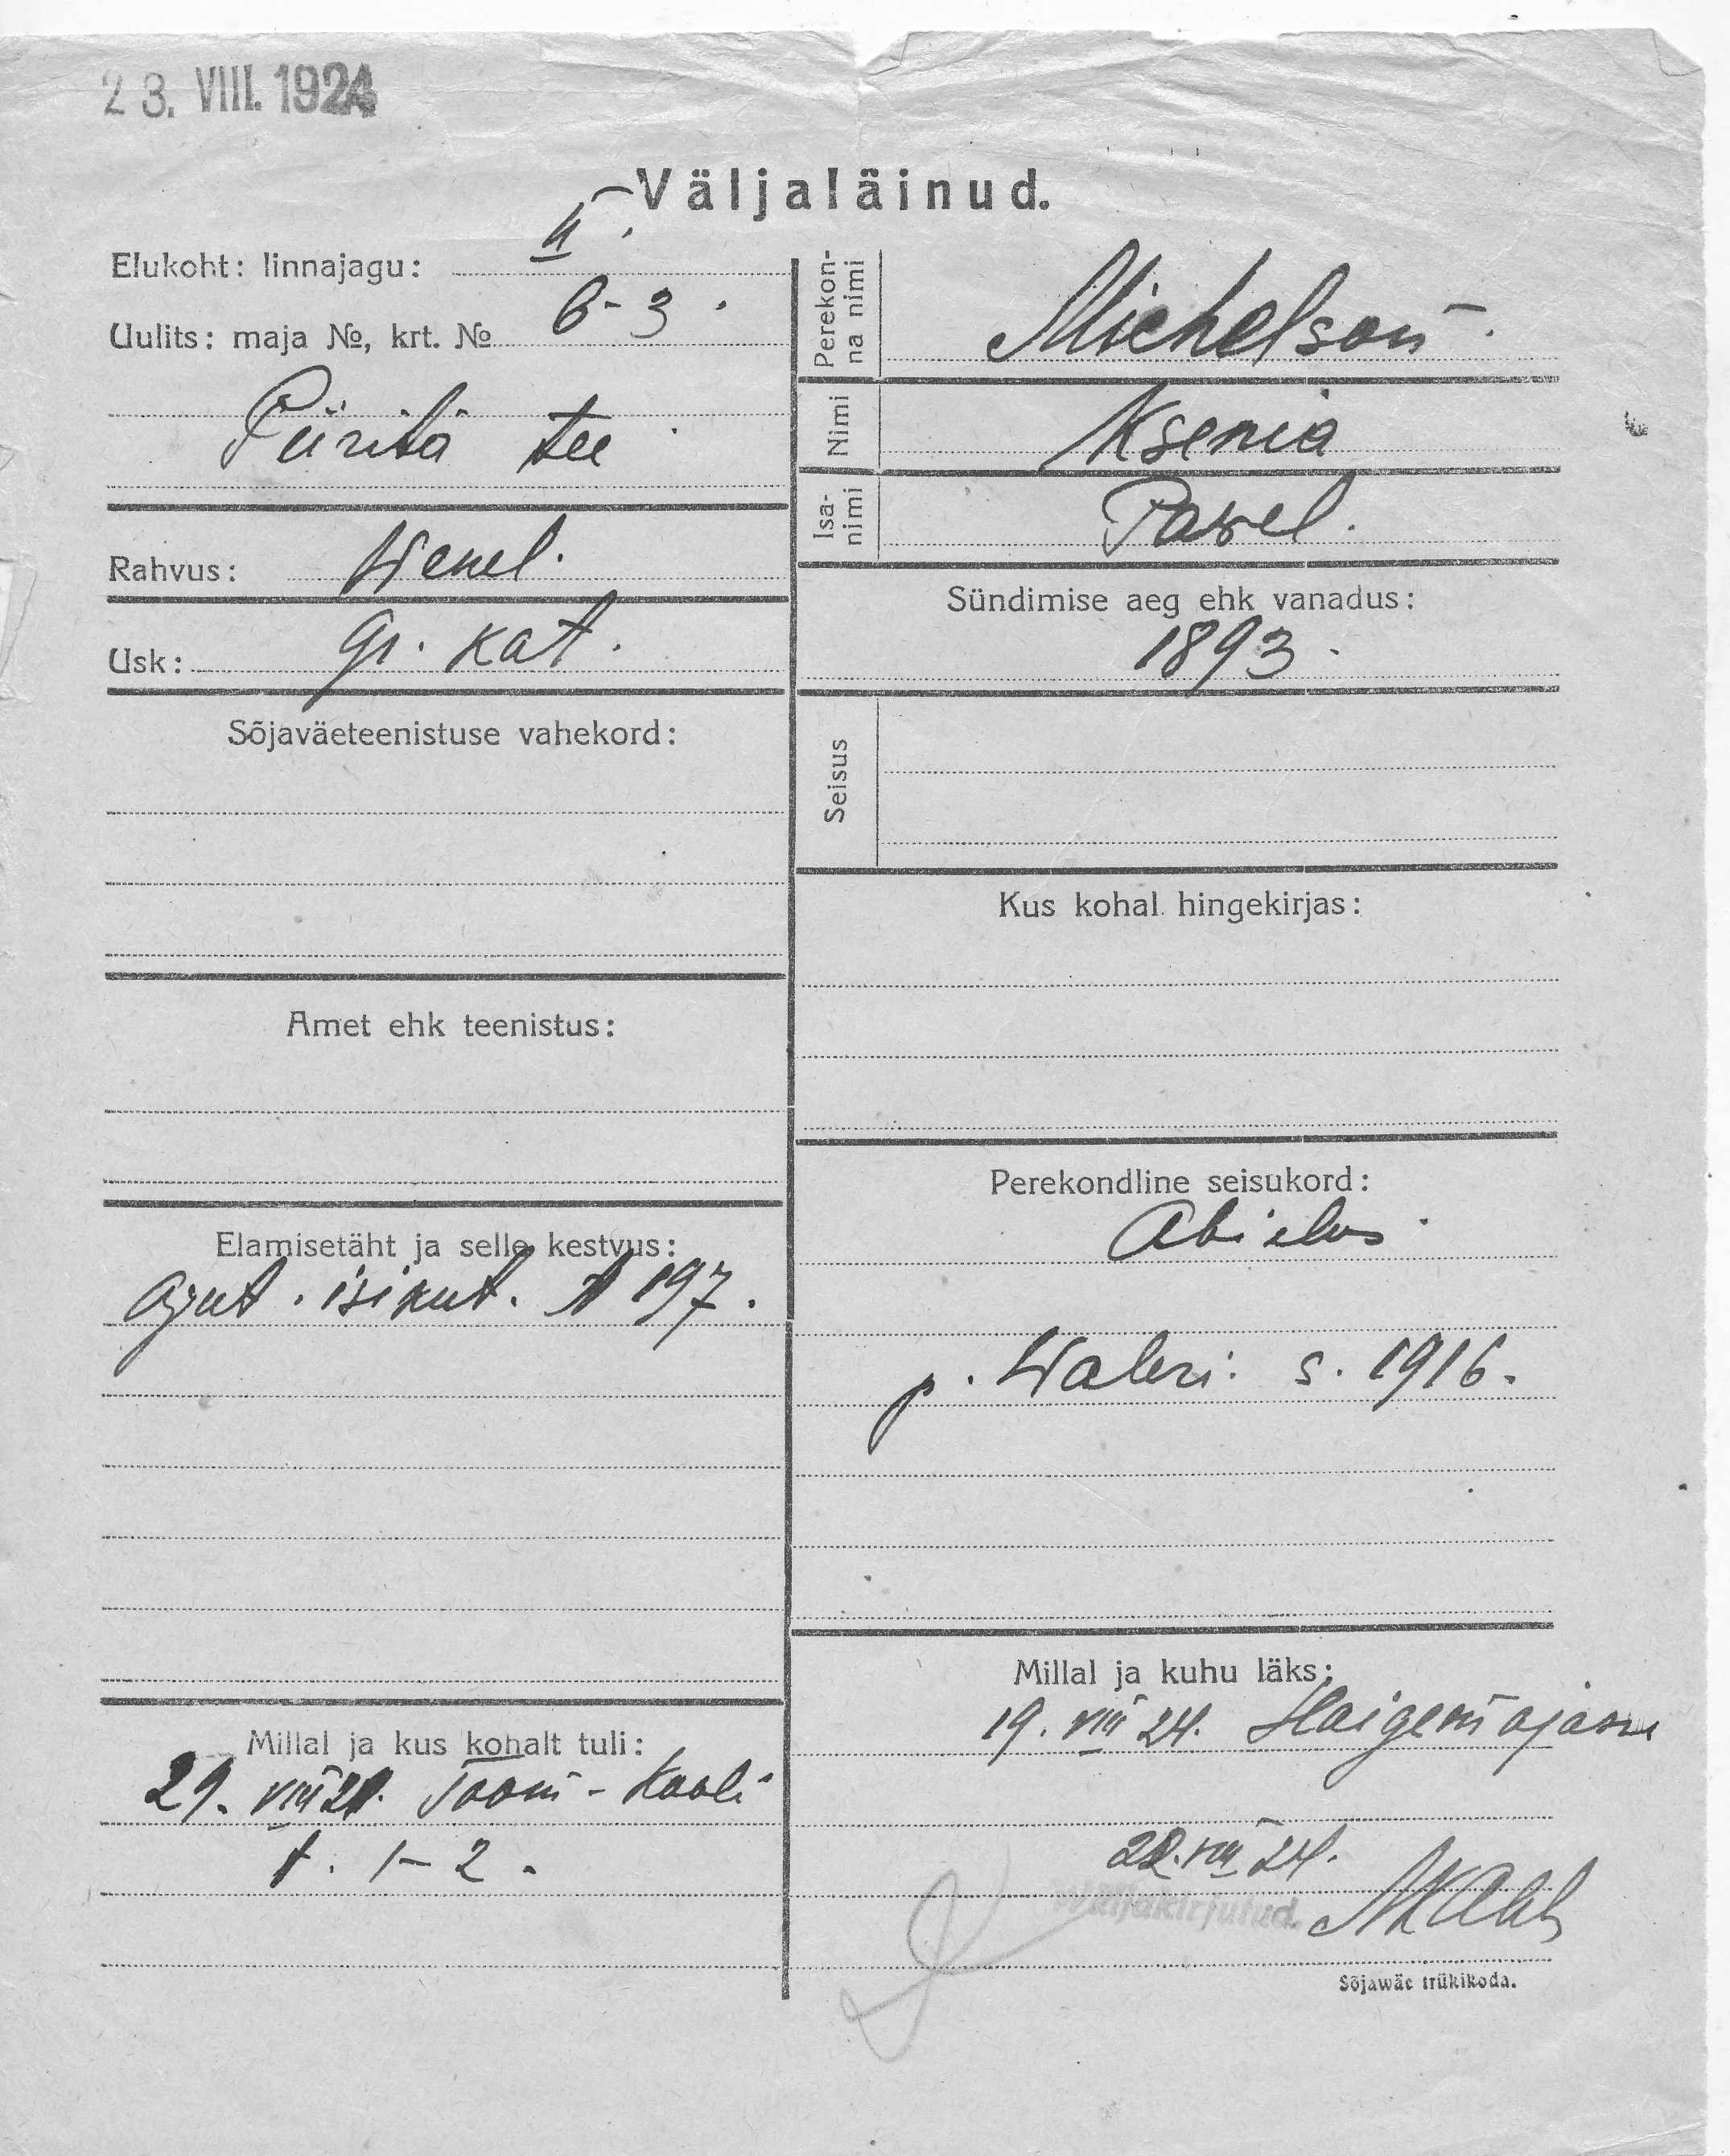 23. VIII. 1924
Väljaläinud.
Elukoht: linnajagu: II
Uulits: maja №, krt. № 6-3.
Piirita tee
Rahvus: Wenel.
Usk: gr. kat.
Sõjaväeteenistuse vahekord:
Amet ehk teenistus:
Elamisetäht ja selle kestvus:
ajut. isikut. A 197.
Millal ja kus kohalt tuli:
29. VIII 21. Toom-Kooli
t. 1-2.
Perekonna nimi Michelson.
Nimi Ksenia
Isanimi Pawel.
Sündimise aeg ehk vanadus:
1893.
Seisus
Kus kohal hingekirjas:
Perekondline seisukord:
Abielus
p. Waleri. s. 1916.
Millal ja kuhu läks:
19. VIII 24. Haigemajasse
22. VIII 24.
Wäljakirjutud.
Sõjawäe trükikoda.